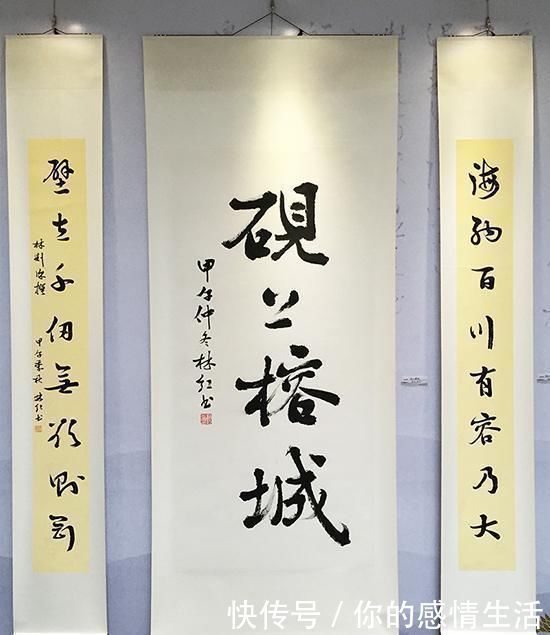 海納百川有容乃大
硯上榕城
甲午仲冬林红书
壁立千仞無欲則剛
林則徐撰
甲午季秋 林红书
快传号 / 你的感情生活